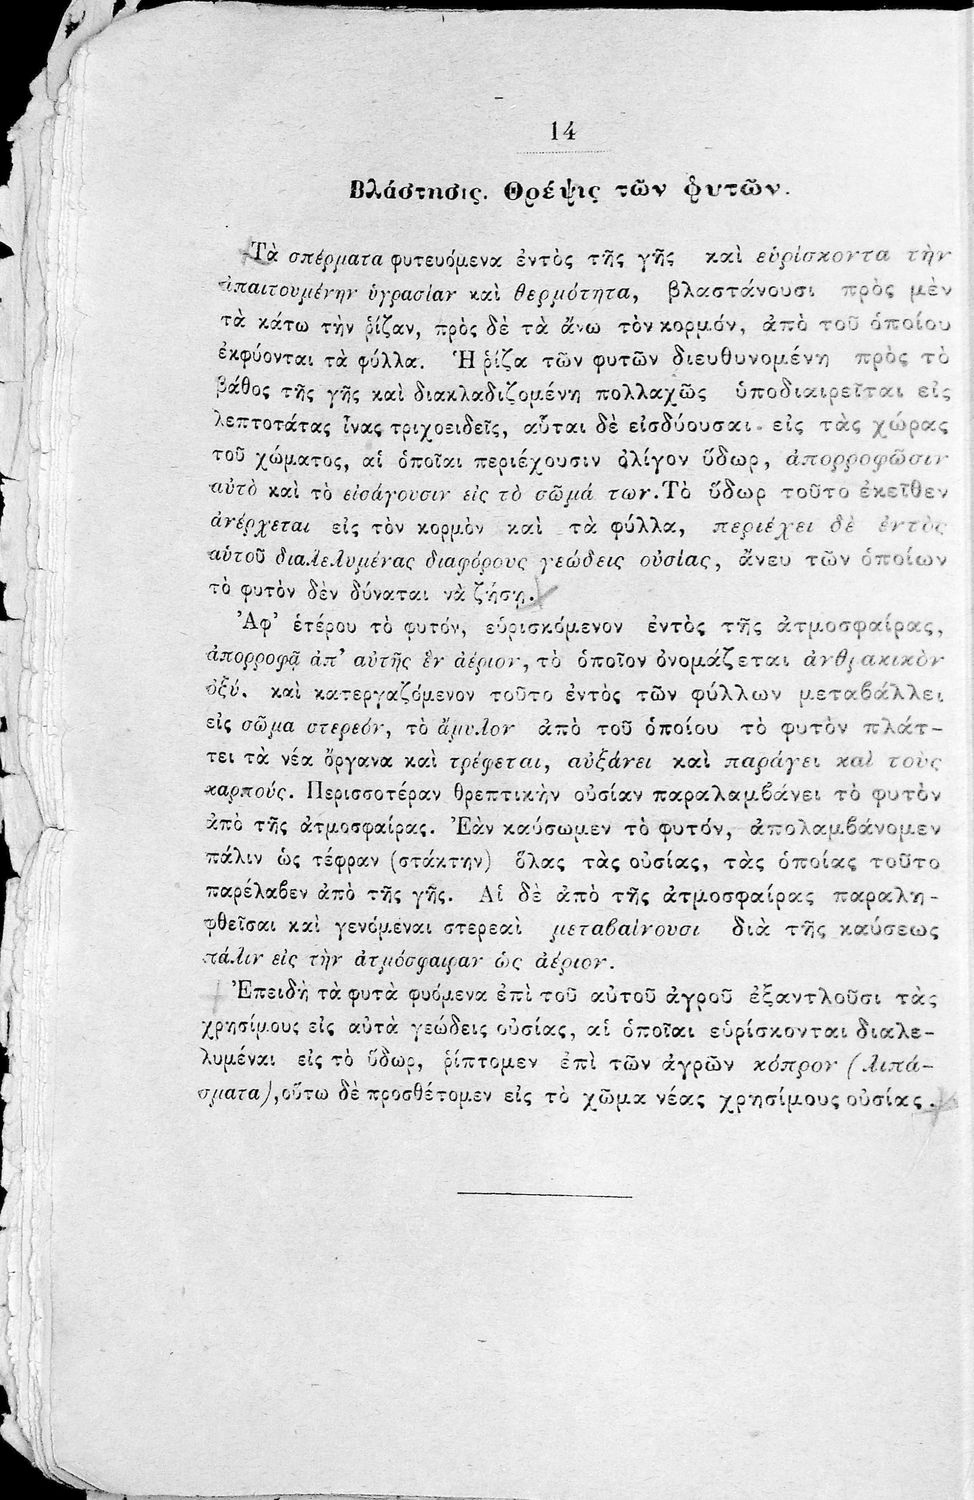 14
Βλάστησις. Θρέψις τῶν φυτῶν.
Τὰ σπέρματα φυτευόμενα ἐντὸς τῆς γῆς καὶ εὑρίσκοντα τὴν
ἀπαιτουμένην ὑγρασίαν καὶ θερμότητα, βλαστάνουσι πρὸς μὲν
τὰ κάτω τὴν ῥίζαν, πρὸς δὲ τὰ ἄνω τὸν κορμόν, ἀπὸ τοῦ ὁποίου
ἐκφύονται τὰ φύλλα. Ἡ ῥίζα τῶν φυτῶν διευθυνομένη πρὸς τὸ
βάθος τῆς γῆς καὶ διακλαδιζομένη πολλαχῶς ὑποδιαιρεῖται εἰς
λεπτοτάτας ἶνας τριχοειδεῖς, αὗται δὲ εἰσδύουσαι εἰς τὰς χώρας
τοῦ χώματος, αἱ ὁποῖαι περιέχουσιν ὀλίγον ὕδωρ, ἀπορροφῶσιν
αὐτὸ καὶ τὸ εἰσάγουσιν εἰς τὸ σῶμά των. Τὸ ὕδωρ τοῦτο ἐκεῖθεν
ἀνέρχεται εἰς τὸν κορμὸν καὶ τὰ φύλλα, περιέχει δὲ ἐντὸς
αὑτοῦ διαλελυμένας διαφόρους γεώδεις οὐσίας, ἄνευ τῶν ὁποίων
τὸ φυτὸν δὲν δύναται νὰ ζήσῃ.
Ἀφ' ἑτέρου τὸ φυτόν, εὑρισκόμενον ἐντὸς τῆς ἀτμοσφαίρας,
ἀπορροφᾷ ἀπ' αὐτῆς ἓν ἀέριον, τὸ ὁποῖον ὀνομάζεται ἀνθρακικὸν
ὀξύ. καὶ κατεργαζόμενον τοῦτο ἐντὸς τῶν φύλλων μεταβάλλει
εἰς σῶμα στερεόν, τὸ ἄμυλον ἀπὸ τοῦ ὁποίου τὸ φυτὸν πλάτ-
τει τὰ νέα ὄργανα καὶ τρέφεται, αὐξάνει καὶ παράγει καὶ τοὺς
καρπούς. Περισσοτέραν θρεπτικὴν οὐσίαν παραλαμβάνει τὸ φυτὸν
ἀπὸ τῆς ἀτμοσφαίρας. Ἐὰν καύσωμεν τὸ φυτόν, ἀπολαμβάνομεν
πάλιν ὡς τέφραν (στάκτην) ὅλας τὰς οὐσίας, τὰς ὁποίας τοῦτο
παρέλαβεν ἀπὸ τῆς γῆς. Αἱ δὲ ἀπὸ τῆς ἀτμοσφαίρας παραλη-
φθεῖσαι καὶ γενόμεναι στερεαὶ μεταβαίνουσι διὰ τῆς καύσεως
πάλιν εἰς τὴν ἀτμόσφαιραν ὡς ἀέριον.
Ἐπειδὴ τὰ φυτὰ φυόμενα ἐπὶ τοῦ αὐτοῦ ἀγροῦ ἐξαντλοῦσι τὰς
χρησίμους εἰς αὐτὰ γεώδεις οὐσίας, αἱ ὁποῖαι εὑρίσκονται διαλε-
λυμέναι εἰς τὸ ὕδωρ, ῥίπτομεν ἐπὶ τῶν ἀγρῶν κόπρον (λιπά-
σματα), οὕτω δὲ προσθέτομεν εἰς τὸ χῶμα νέας χρησίμους οὐσίας.